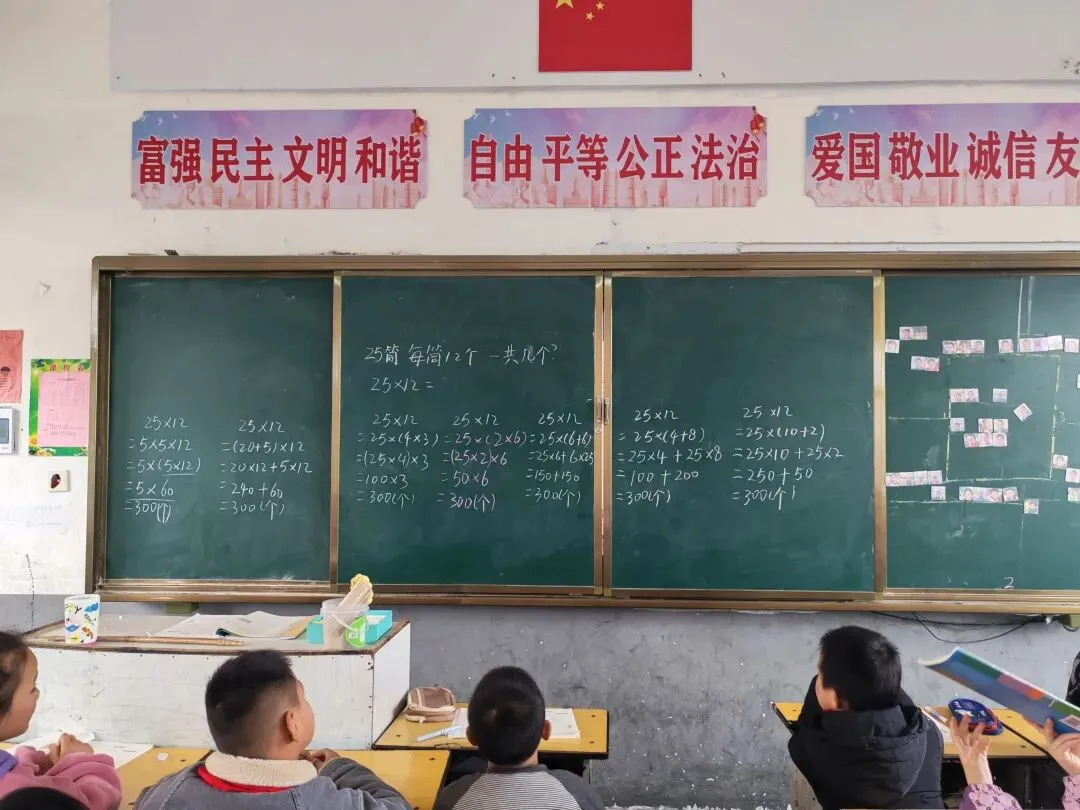 富强 民主 文明 和谐
自由 平等 公正 法治
爱国 敬业 诚信 友
25筒 每筒12个 一共几个?
25×12=
25×12
=5×5×12
=5×(5×12)
=5×60
=300(个)
25×12
=(20+5)×12
=20×12+5×12
=240+60
=300(个)
25×12
=25×(4×3)
=(25×4)×3
=100×3
=300(个)
25×12
=25×(2×6)
=(25×2)×6
=50×6
=300(个)
25×12
=25×(6+6)
=25×6+6×25
=150+150
=300(个)
25×12
=25×(4+8)
=25×4+25×8
=100+200
=300(个)
25×12
=25×(10+2)
=25×10+25×2
=250+50
=300(个)
2